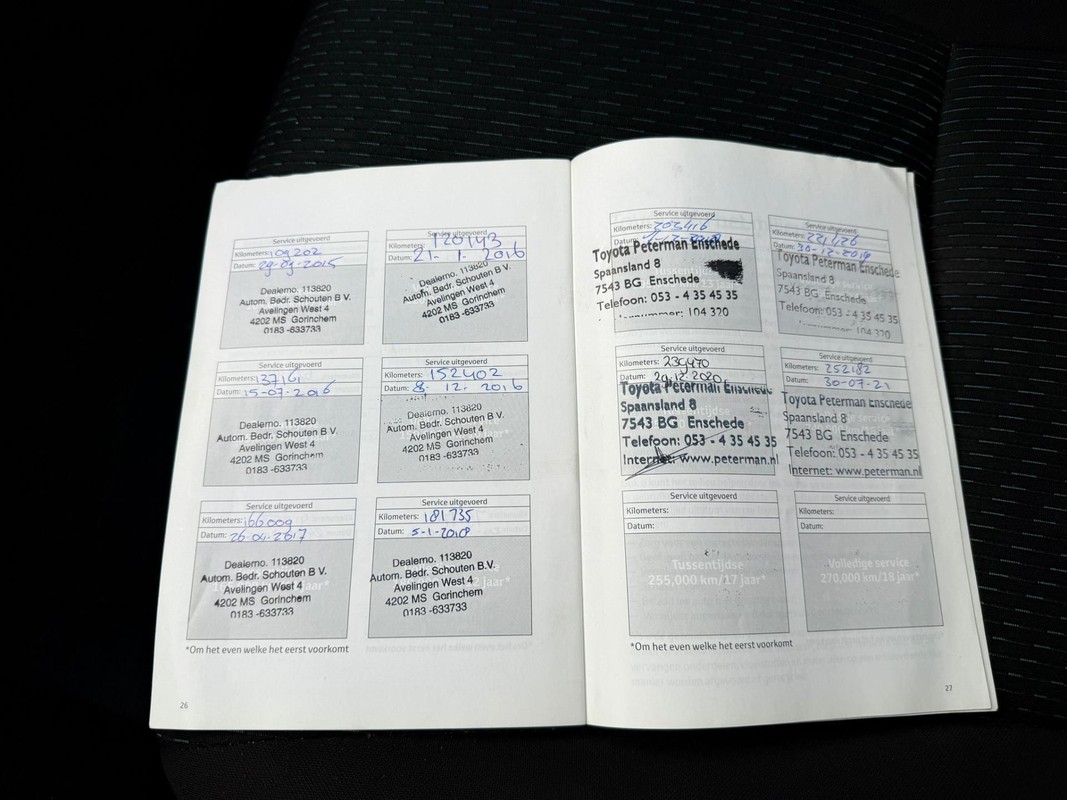 Service uitgevoerd
Kilometers: 109202
Datum: 29-09-2015
Dealerno. 113820
Autom. Bedr. Schouten B V.
Avelingen West 4
4202 MS Gorinchem
0183 -633733
Service uitgevoerd
Kilometers: 120143
Datum: 21- 1. 2016
Dealerno. 113820
Autom. Bedr. Schouten B V.
Avelingen West 4
4202 MS Gorinchem
0183 -633733
Service uitgevoerd
Kilometers: 137161
Datum: 15-07-2016
Dealerno. 113820
Autom. Bedr. Schouten B V.
Avelingen West 4
4202 MS Gorinchem
0183 -633733
Service uitgevoerd
Kilometers: 152402
Datum: 8. 12. 2016
Dealerno. 113820
Autom. Bedr. Schouten B V.
Avelingen West 4
4202 MS Gorinchem
0183 -633733
Service uitgevoerd
Kilometers: 166009
Datum: 26-04-2017
Dealerno. 113820
Autom. Bedr. Schouten B V.
Avelingen West 4
4202 MS Gorinchem
0183 -633733
Service uitgevoerd
Kilometers: 181735
Datum: 5-1-2018
Dealerno. 113820
Autom. Bedr. Schouten B.V.
Avelingen West 4
4202 MS Gorinchem
0183 -633733
*Om het even welke het eerst voorkomt
26
Service uitgevoerd
Kilometers: 203416
Toyota Peterman Enschede
Spaansland 8
7543 BG Enschede
Telefoon: 053 - 4 35 45 35
104 320
Service uitgevoerd
Kilometers: 221426
Datum: 30-12-2019
Toyota Peterman Enschede
Spaansland 8
7543 BG Enschede
Telefoon: 053 - 4 35 45 35
104 320
Service uitgevoerd
Kilometers: 239470
Datum: 29-12-2020
Toyota Peterman Enschede
Spaansland 8
7543 BG Enschede
Telefoon: 053 - 4 35 45 35
Internet: www.peterman.nl
Service uitgevoerd
Kilometers: 252182
Datum: 30-07-21
Toyota Peterman Enschede
Spaansland 8
7543 BG Enschede
Telefoon: 053 - 4 35 45 35
Internet: www.peterman.nl
Service uitgevoerd
Kilometers:
Datum:
Tussentijdse
255,000 km/17 jaar*
Service uitgevoerd
Kilometers:
Datum:
Volledige service
270,000 km/18 jaar*
*Om het even welke het eerst voorkomt
27